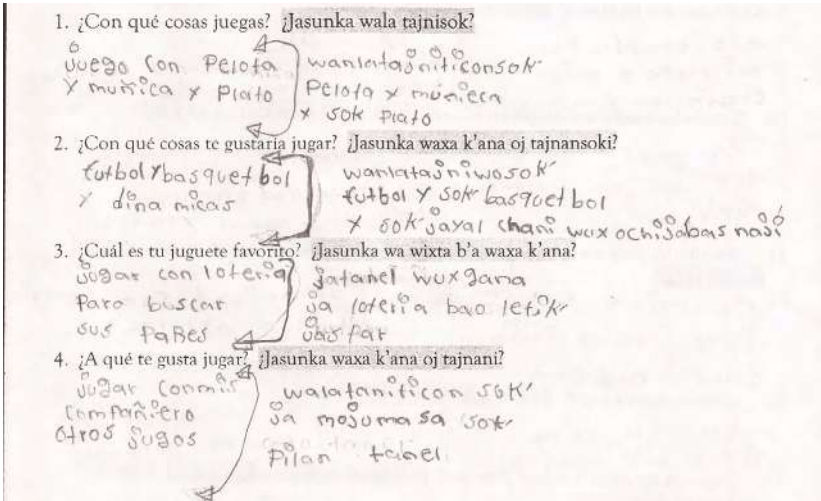 1. ¿Con qué cosas juegas? ¿Jasunka wala tajnisok?
Juego con Pelota
y muñica y Plato
wanlatajniticonsok'
Pelota y muñieca
y sok Plato
2. ¿Con qué cosas te gustaría jugar? ¿Jasunka waxa k'ana oj tajnansoki?
futbol y basquet bol
y dina micas
wanlatajniwosok'
futbol y sok' basquet bol
y sok' jayal chani wax ochijabas naji
3. ¿Cuál es tu juguete favorito? ¿Jasunka wa wixta b'a waxa k'ana?
jugar con loteria
Para buscar
sus PaRes
jatanel wuxgana
ja loteria bao letik'
jbis Par
4. ¿A qué te gusta jugar? ¿Jasunka waxa k'ana oj tajnani?
jugar conmis
Compañiero
otros jugos
walataniticon sok'
ja mojuma sa sok'
Pilan tanel